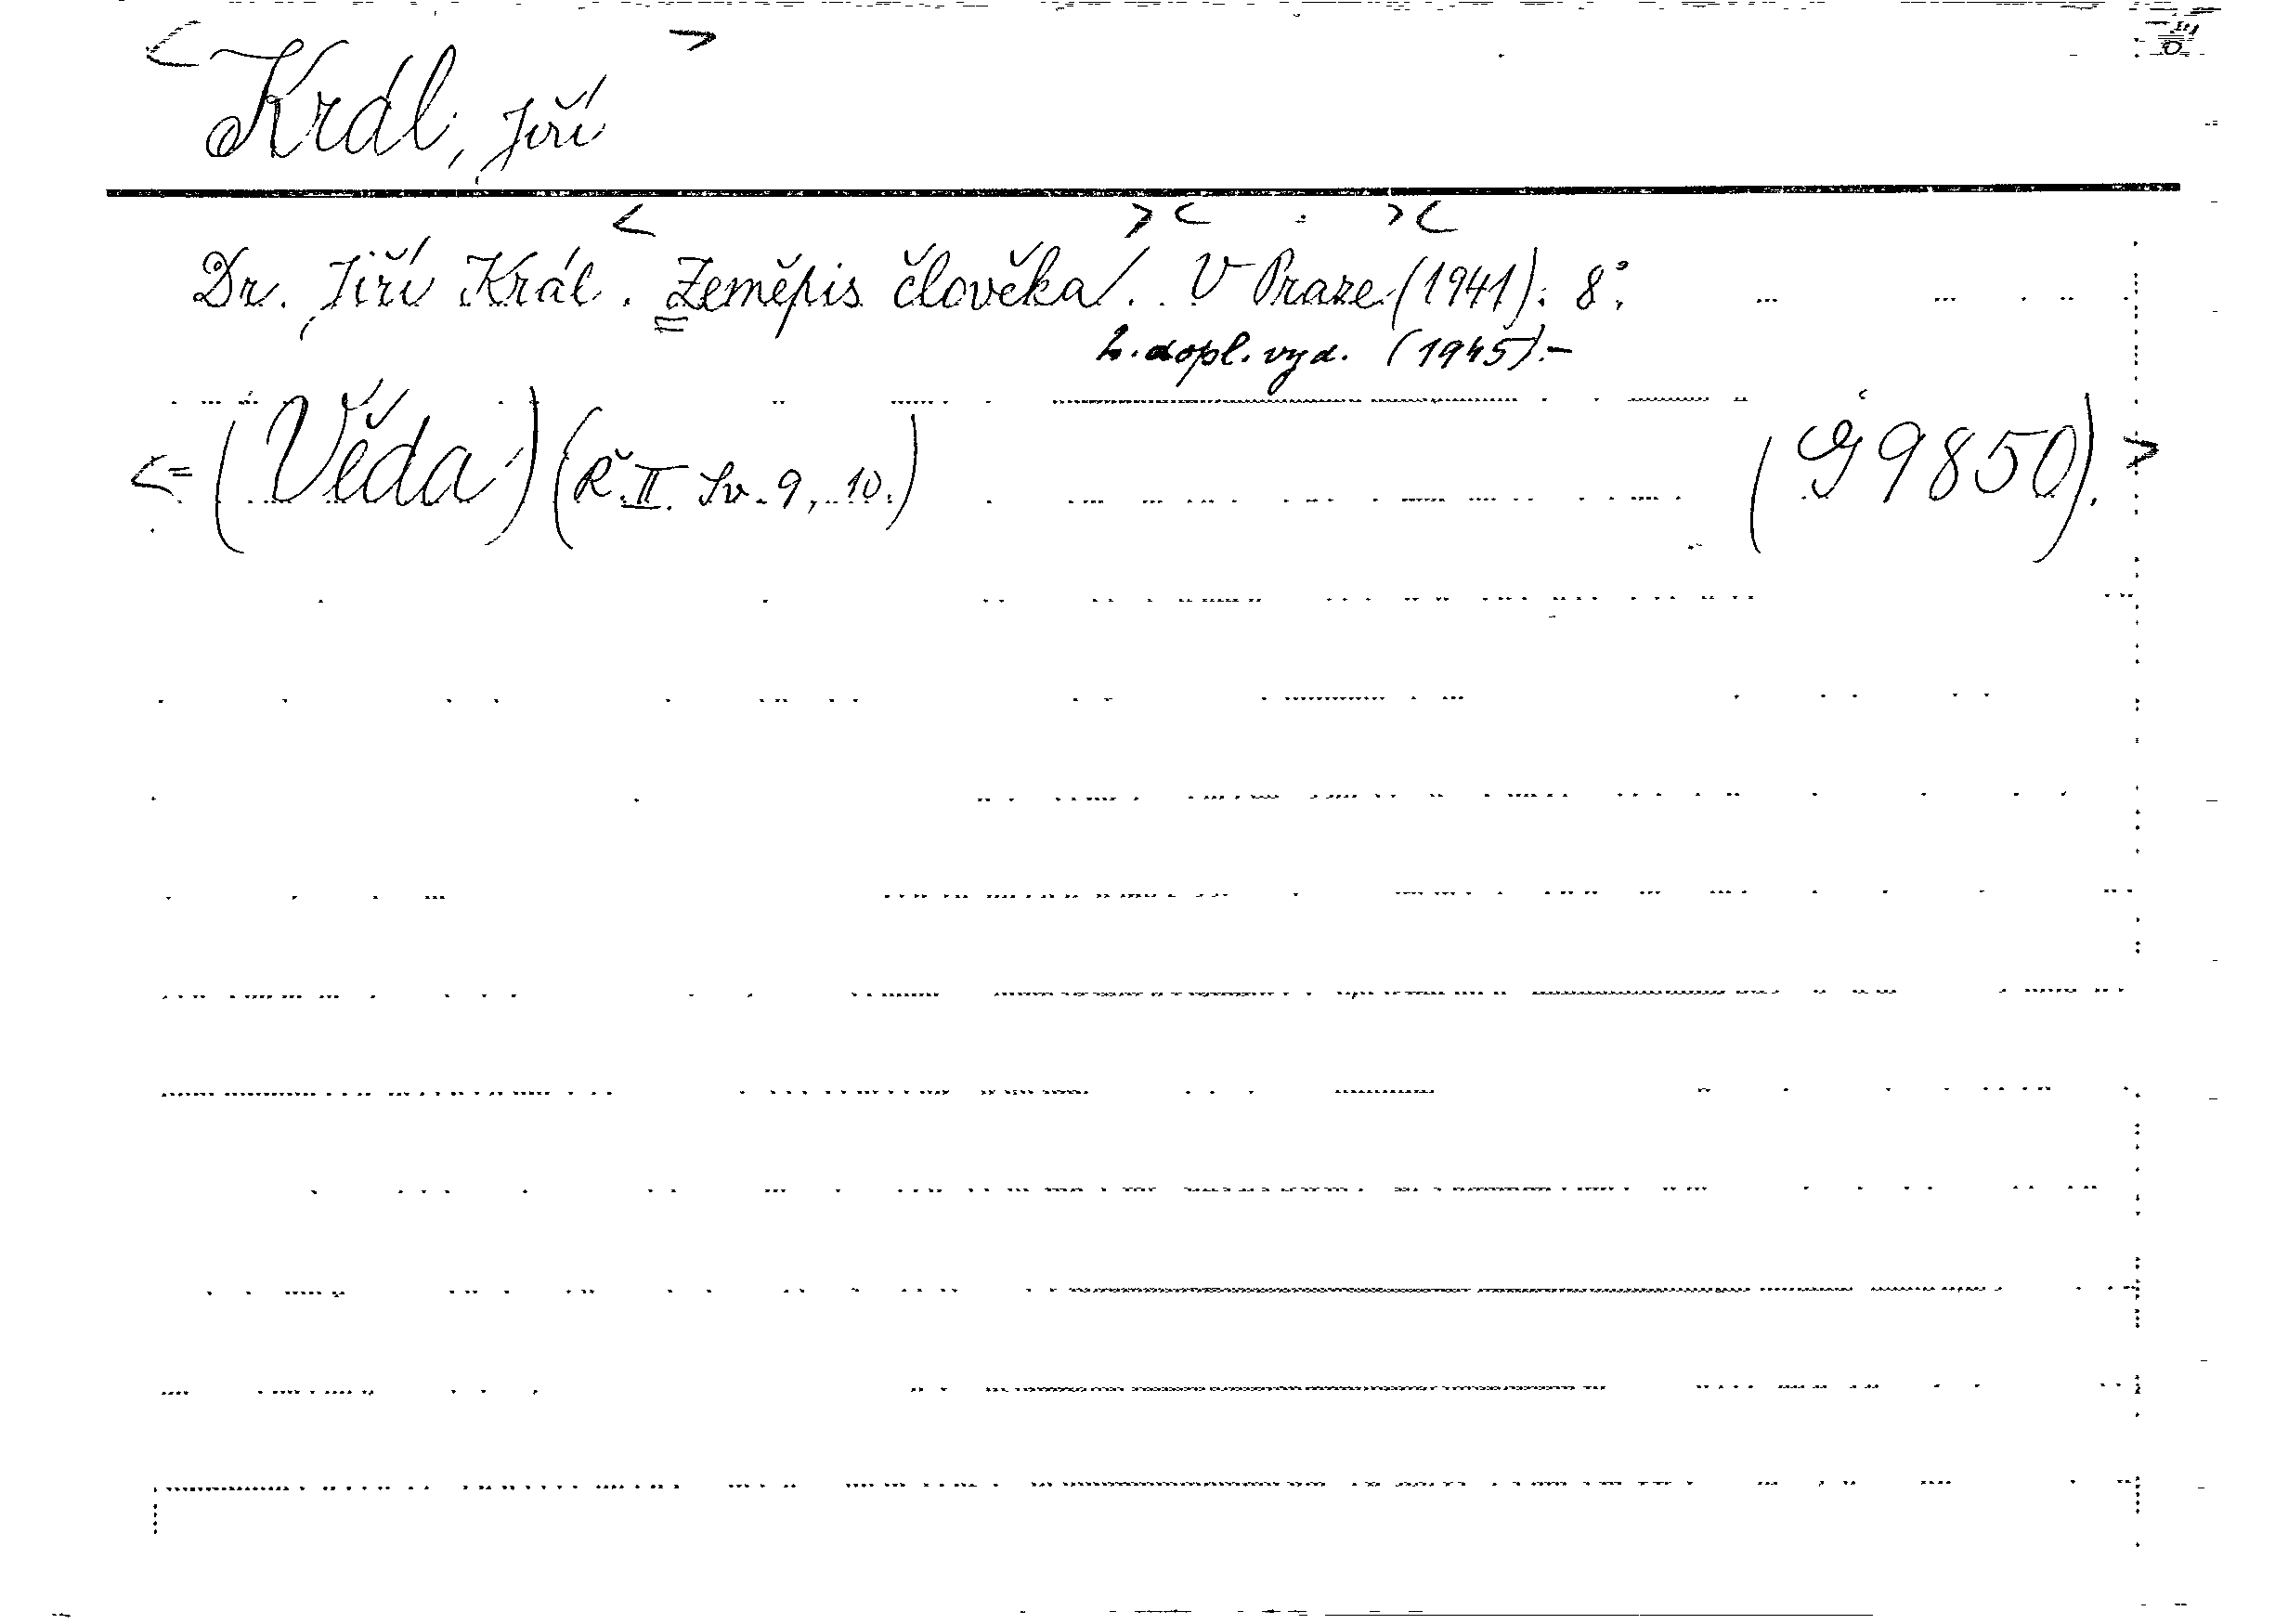 < Král, Jiří >
Dr. Jiří Král. < Zeměpis člověka. > < V Praze > < (1941). 8°.
2. dopl. vyd. (1945).-
<= (Věda) (Ř. II. Sv. 9, 10.) (G 9850). >